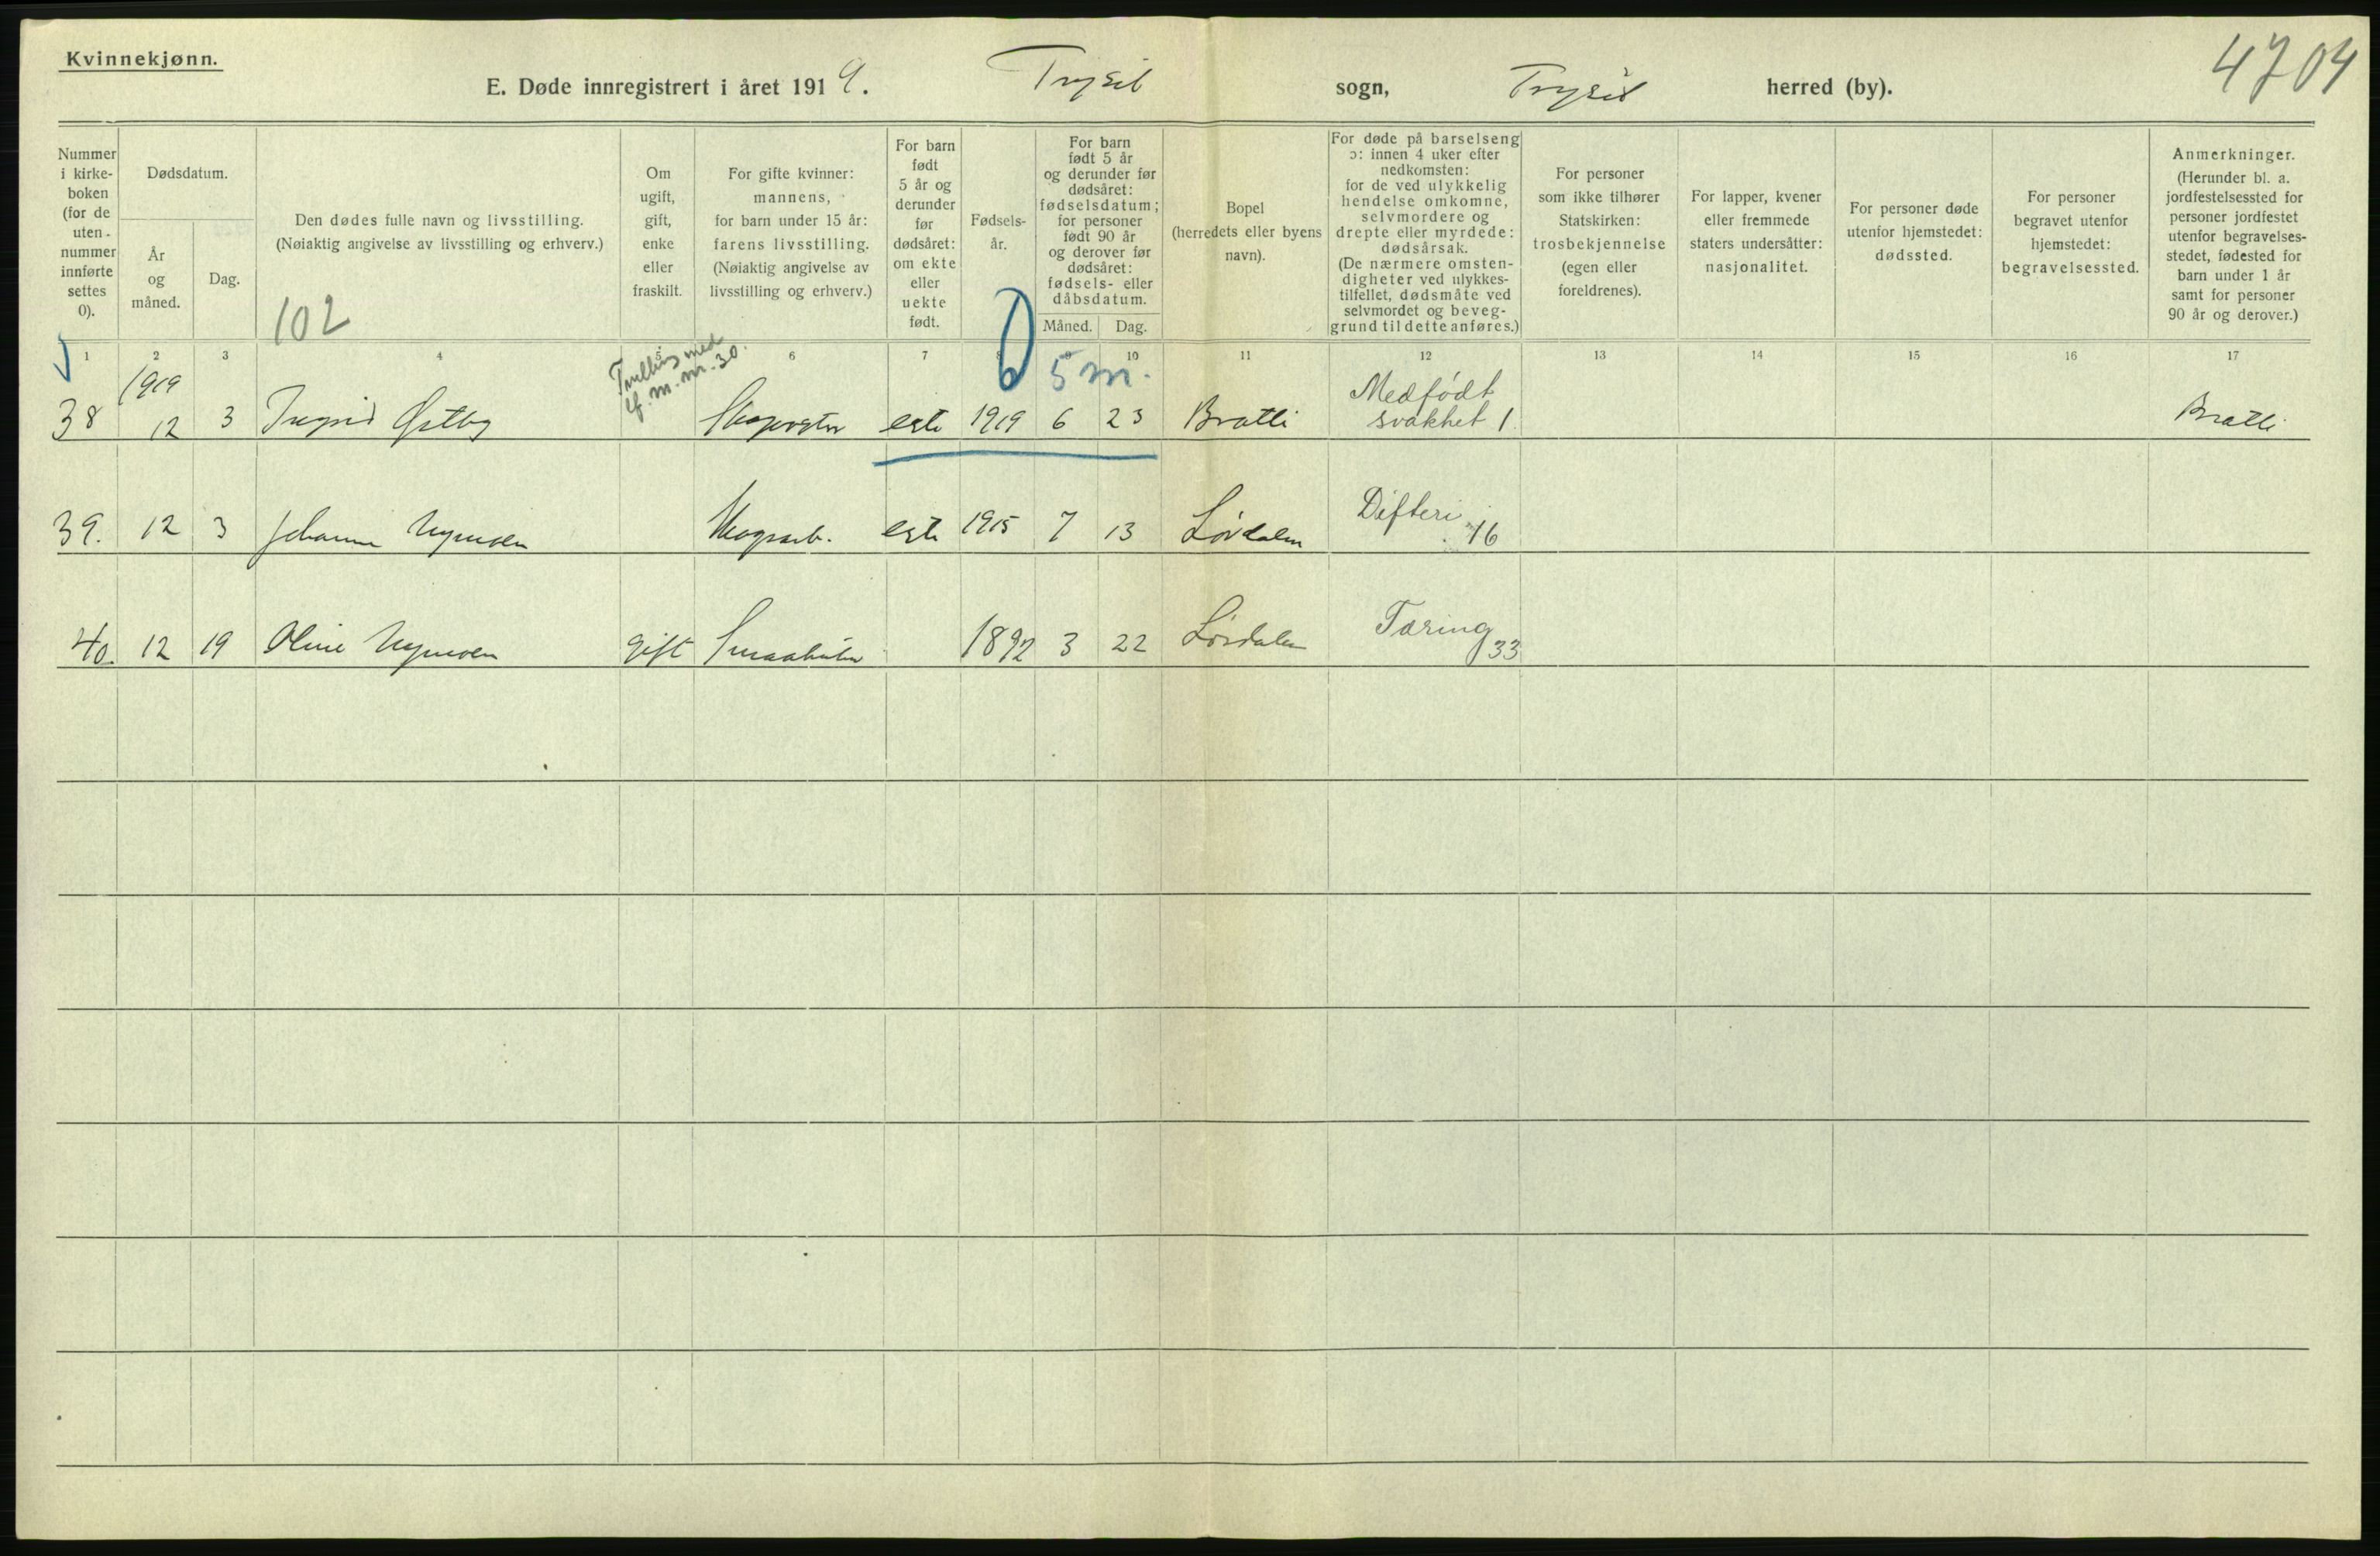 Kvinnekjønn.
4704
E. Døde innregistrert i året 1919. Trysil sogn, Trysil herred (by).
Nummer
i kirke-
boken
(for de
uten-
nummer
innførte
settes
0).
Dødsdatum.
År
og
måned.
Dag.
Den dødes fulle navn og livsstilling.
(Nøiaktig angivelse av livsstilling og erhverv.)
102
Om
ugift,
gift,
enke
eller
fraskilt.
For gifte kvinner:
mannens,
for barn under 15 år:
farens livsstilling.
(Nøiaktig angivelse av
livsstilling og erhverv.)
For barn
født
5 år og
derunder
før
dødsåret:
om ekte
eller
uekte
født.
Fødsels-
år.
For barn
født 5 år
og derunder før
dødsåret:
fødselsdatum;
for personer
født 90 år
og derover før
dødsåret:
fødsels- eller
dåbsdatum.
Måned. Dag.
Bopel
(herredets eller byens
navn).
For døde på barselseng
ɔ: innen 4 uker efter
nedkomsten:
for de ved ulykkelig
hendelse omkomne,
selvmordere og
drepte eller myrdede:
dødsårsak.
(De nærmere omsten-
digheter ved ulykkes-
tilfellet, dødsmåte ved
selvmordet og beveg-
grund til dette anføres.)
For personer
som ikke tilhører
Statskirken:
trosbekjennelse
(egen eller
foreldrenes).
For lapper, kvener
eller fremmede
staters undersåtter:
nasjonalitet.
For personer døde
utenfor hjemstedet:
dødssted.
For personer
begravet utenfor
hjemstedet:
begravelsessted.
Anmerkninger.
(Herunder bl. a.
jordfestelsessted for
personer jordfestet
utenfor begravelses-
stedet, fødested for
barn under 1 år
samt for personer
90 år og derover.)
1 2 3 4 5 6 7 8 9 10 11 12 13 14 15 16 17
1919
Tvilling med
lf. m. nr. 30.
5 m.
Medfødt
38 12 3 Ingrid Østby ekte 1919 6 23 Bratli svakhet 1. Bratli
39. 12 3 Johanne Nymoen Skogsarb. ekte 1915 7 13 Lørdalen Difteri 16
40. 12 19 Oline Nymoen gift 1892 3 22 Lørdalen Tæring 33